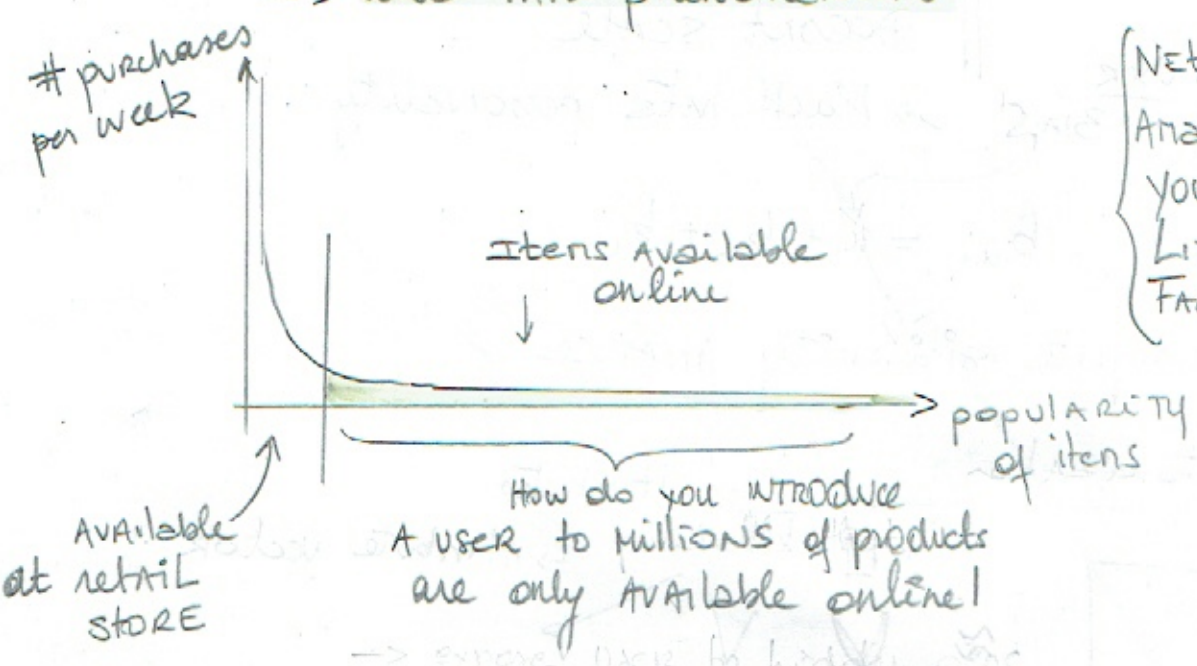 # purchases
per week
Itens Available
online
popularity
of itens
Available
at retail
store
How do you introduce
A user to millions of products
are only Available online!